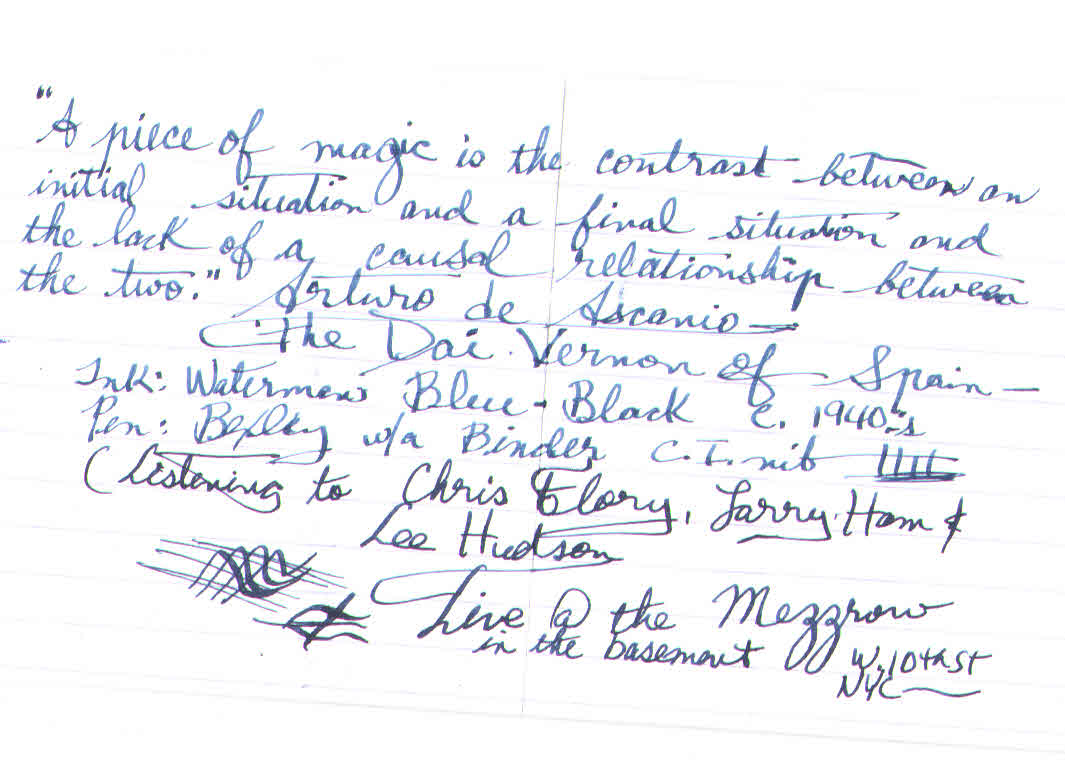 "A piece of magic is the contrast between an
initial situation and a final situation and
the lack of a causal relationship between
the two." Arturo de Ascanio —
The Dai Vernon of Spain —
Ink: Waterman's Blue-Black c. 1940's
Pen: Bexley w/a Binder C.I. nib
(Listening to Chris Flory, Larry Ham &
Lee Hudson
Live @ the Mezzrow
in the basement W. 10th St
NYC